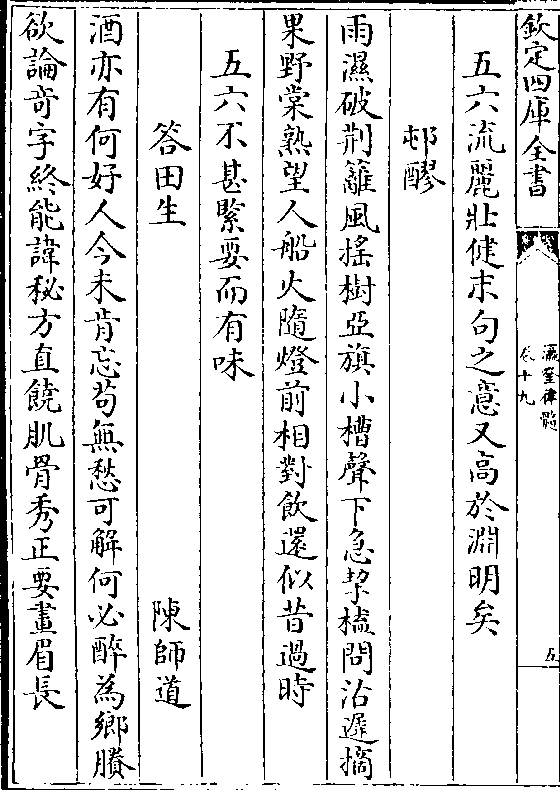 欽定四庫全書
瀛奎律髓
卷十九
五
五六流麗壯健末句之意又高於淵明矣
邨醪
雨濕破荆籬風搖樹亞旗小槽聲下急挈榼問沽遲摘
果野棠熟望人船火隨燈前相對飲還似昔過時
五六不甚緊要而有味
答田生 陳師道
酒亦有何好人今未肯忘苟無愁可解何必醉為鄉賸
欲論奇字終能諱秘方直饒肌骨秀正要畫眉長